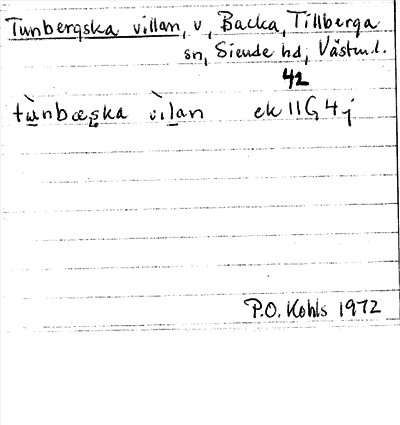 Tunbergska villan, v, Backa, Tillberga
sn, Siende hd, Västm.l.
42
tùnbæska vìlan ek 11G 4j
P.O. Kohls 1972